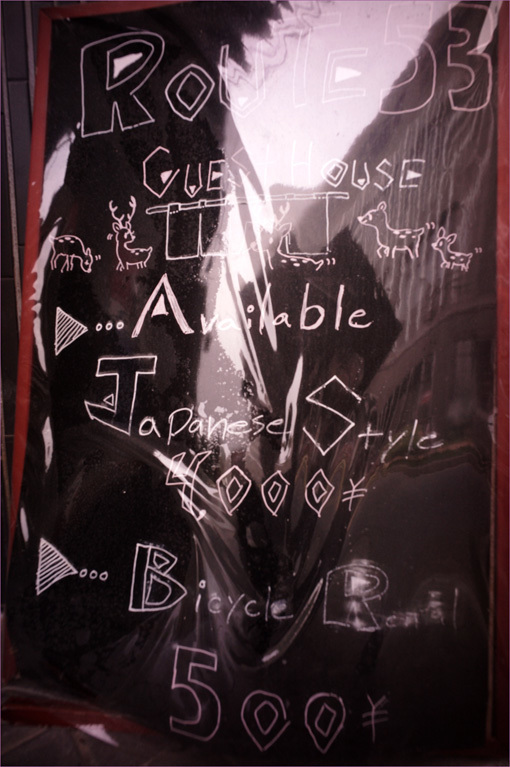 ROUTE 53
GUEST HOUSE
Available
Japanese Style
4000¥
Bicycle Rental
500¥